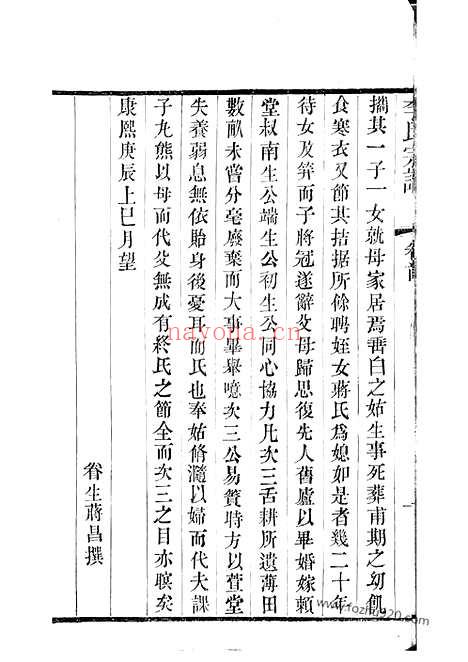 李氏宗譜
卷首
攜其一子一女就母家居焉垂白之姑生事死葬甫期之幼飢
食寒衣又節其拮据所餘聘姪女蔣氏爲媳如是者幾二十年
待女及筓而子將冠遂辭父母歸思復先人舊廬以畢婚嫁賴
堂叔南生公端生公初生公同心協力凡次三舌耕所遺薄田
數畝未曾分毫廢棄而大事畢舉噫次三公易簀時方以萱堂
失養弱息無依貽身後憂耳而氏也奉姑脩瀡以婦而代夫課
子丸熊以母而代父無成有終氏之節全而次三之目亦瞑矣
康熙庚辰上巳月望
眷生蔣昌撰
nayona.cn
www.fozhu920.com